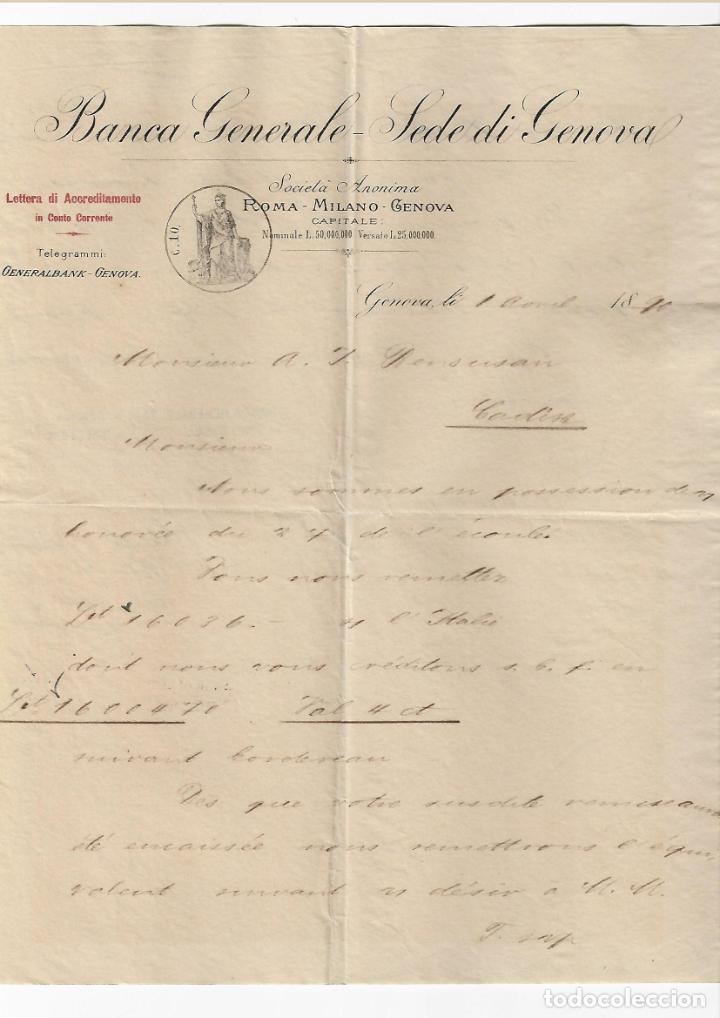 Banca Generale - Sede di Genova
Società Anonima
ROMA - MILANO - GENOVA
CAPITALE:
Nominale L. 50,000,000 Versato L. 25,000,000.
Lettera di Accreditamento
in Conto Corrente
Telegrammi:
GENERALBANK - GENOVA.
C. 10.
Genova, li 1 Avril 1890
Monsieur A. J. Bensusan
Cadix
Monsieur
Nous sommes en possession de
honorée du 27 de l'écoulé.
Vous nous remettez
Lit 16036.- s/ l'Italie
dont nous vous créditons s. b. f. en
Lit 16004.70 Val 4 ct
suivant bordereau
Dès que votre susdite remise aura
été encaissée nous remettrons l'équi
valent suivant v/ désir à M. M.
todocoleccion